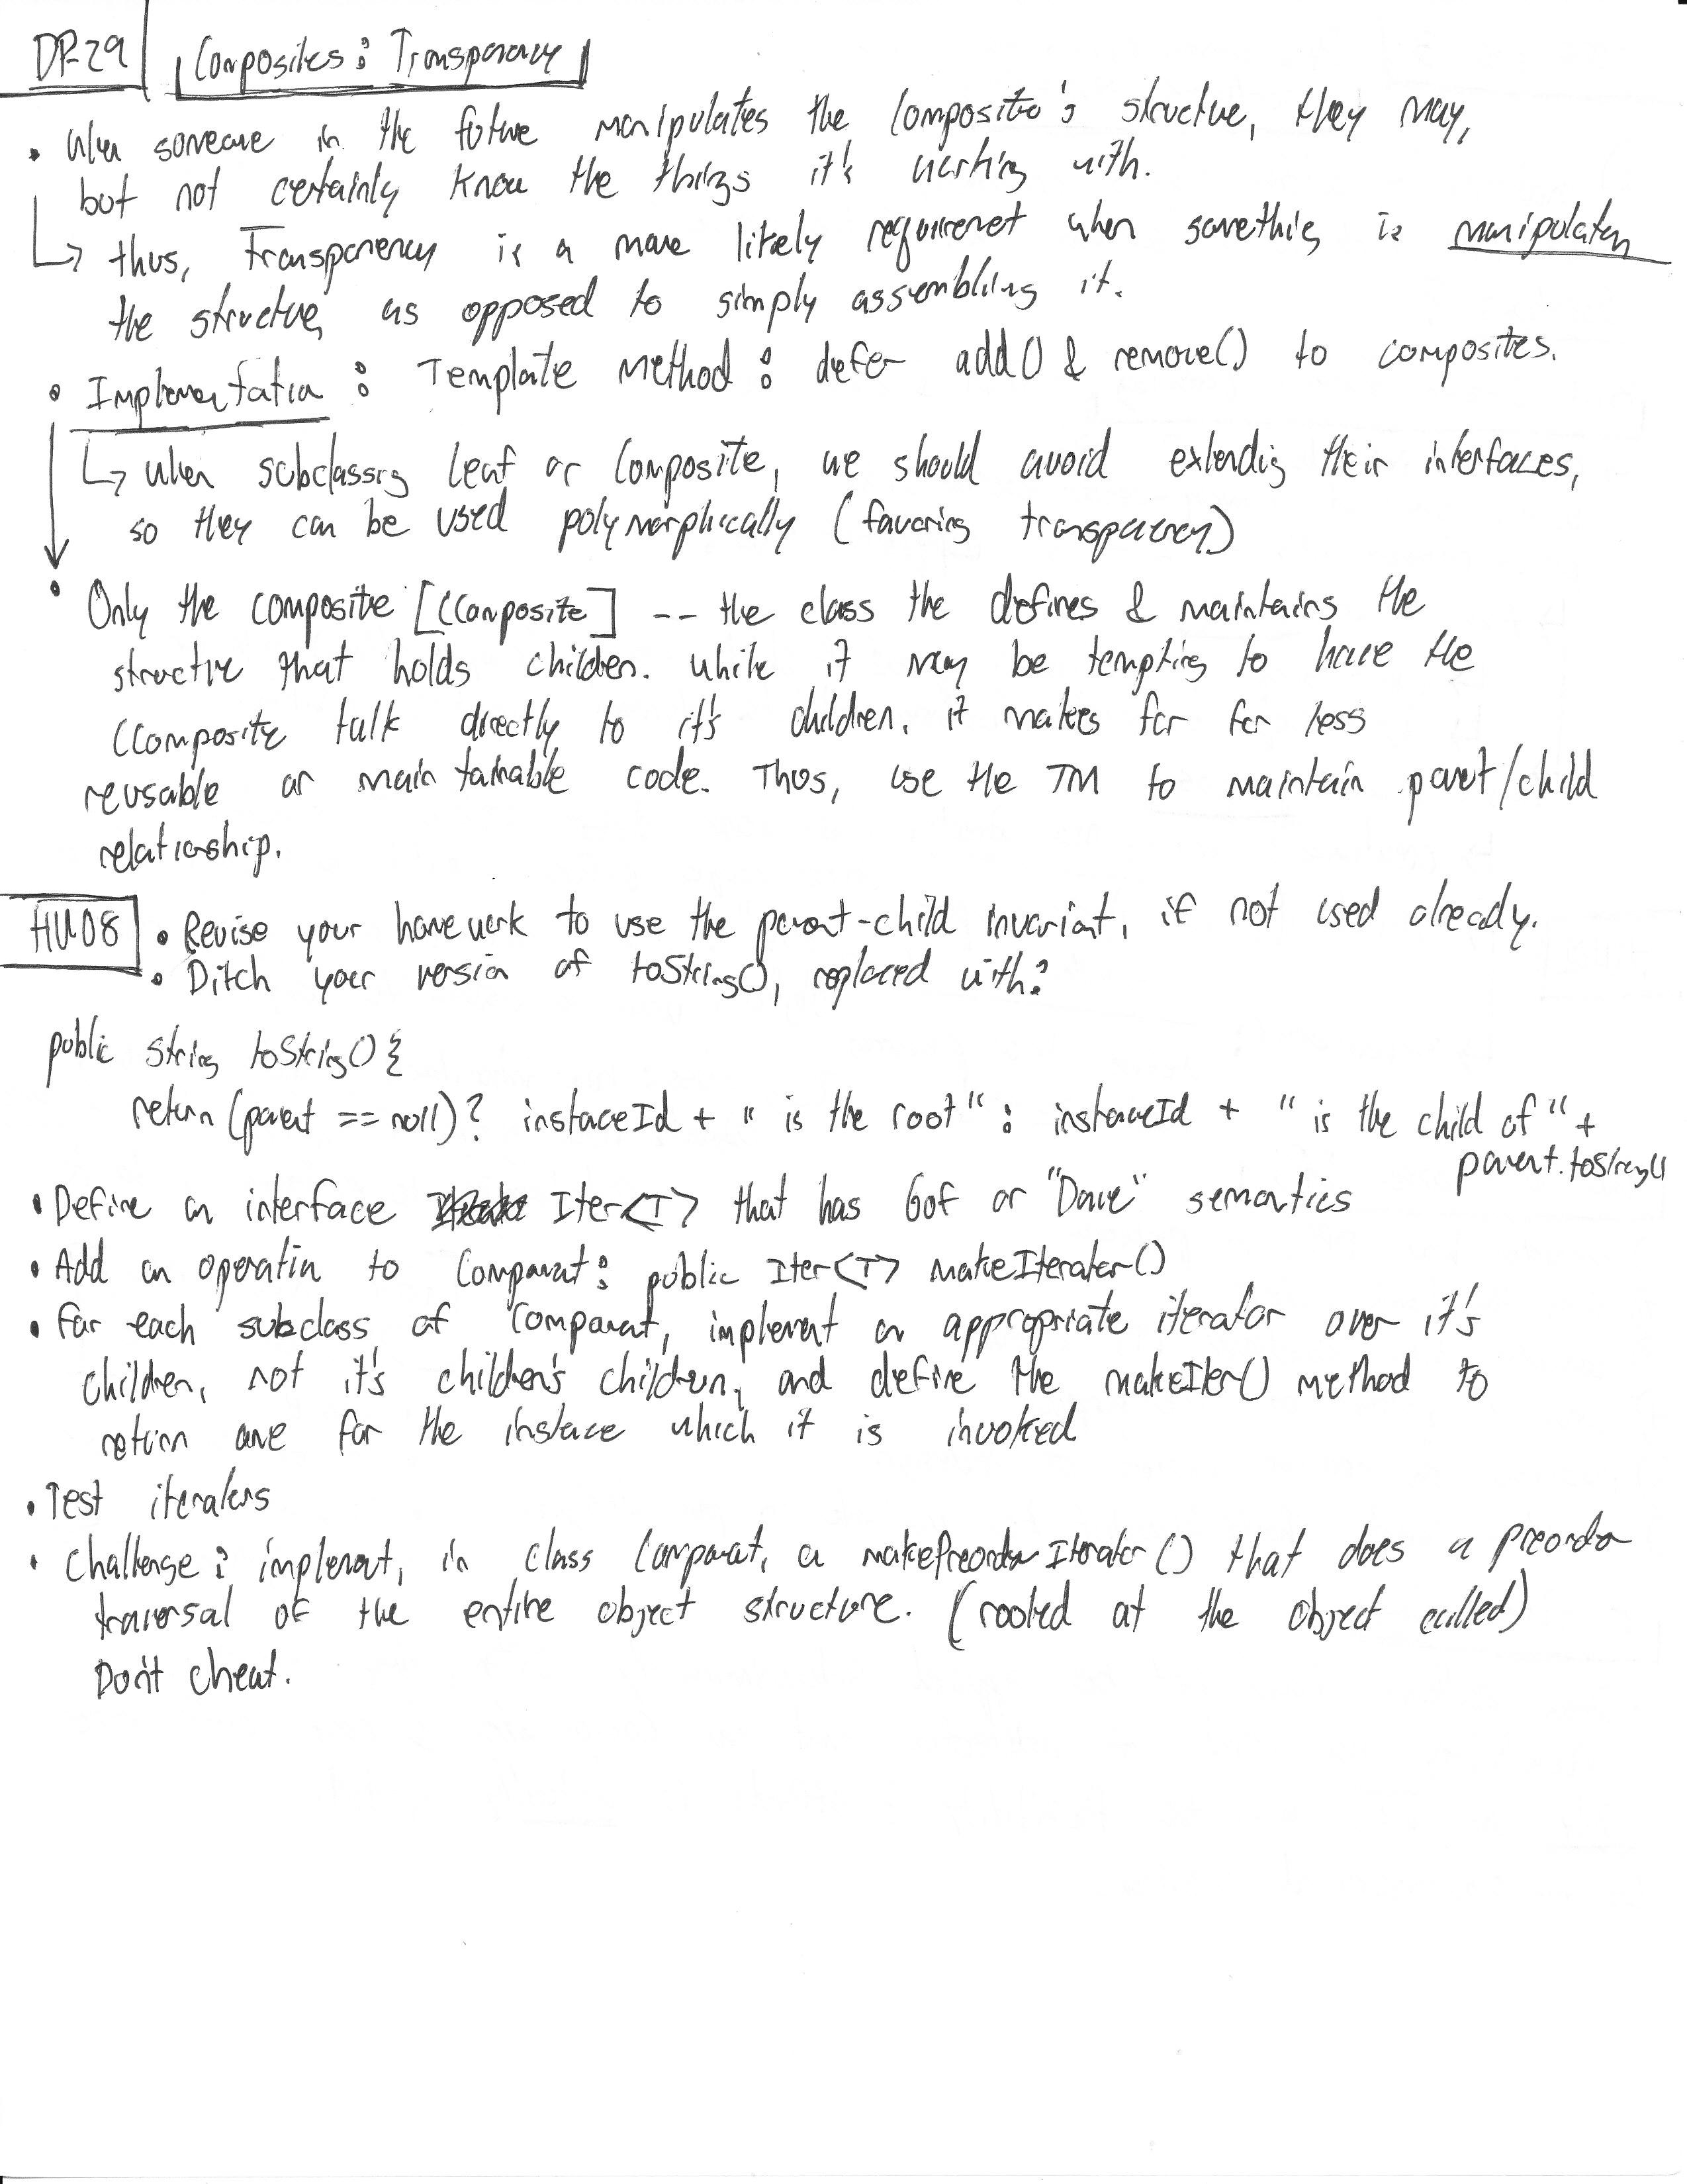 DP-29 Composites: Transparency
• When someone in the future manipulates the Composite's structure, they may,
but not certainly know the things it's working with.
↳ thus, Transparency is a more likely requirement when something is manipulating
the structure, as opposed to simply assembling it.
• Implementation: Template Method: defer add() & remove() to composites.
↳ when subclassing Leaf or Composite, we should avoid extending their interfaces,
so they can be used polymorphically (favoring transparency)
• Only the composite [CComposite] -- the class the defines & maintains the
structure that holds children. While it may be tempting to have the
CComposite talk directly to it's children, it makes for far less
reusable or maintainable code. Thus, use the TM to maintain parent/child
relationship.
HW08 • Revise your homework to use the parent-child invariant, if not used already.
• Ditch your version of toString(), replaced with:
public String toString() {
return (parent == null)? instanceId + " is the root" : instanceId + " is the child of " +
parent.toString()
• Define an interface Iter<T> that has GoF or "Dave" semantics
• Add an operation to Component: public Iter<T> makeIterator()
• For each subclass of Component, implement an appropriate iterator over it's
children, not it's children's children, and define the makeIter() method to
return one for the instance which it is invoked
• Test iterators
• Challenge: implement, in class Component, a makePreorderIterator() that does a preorder
traversal of the entire object structure. (rooted at the object called)
Don't cheat.